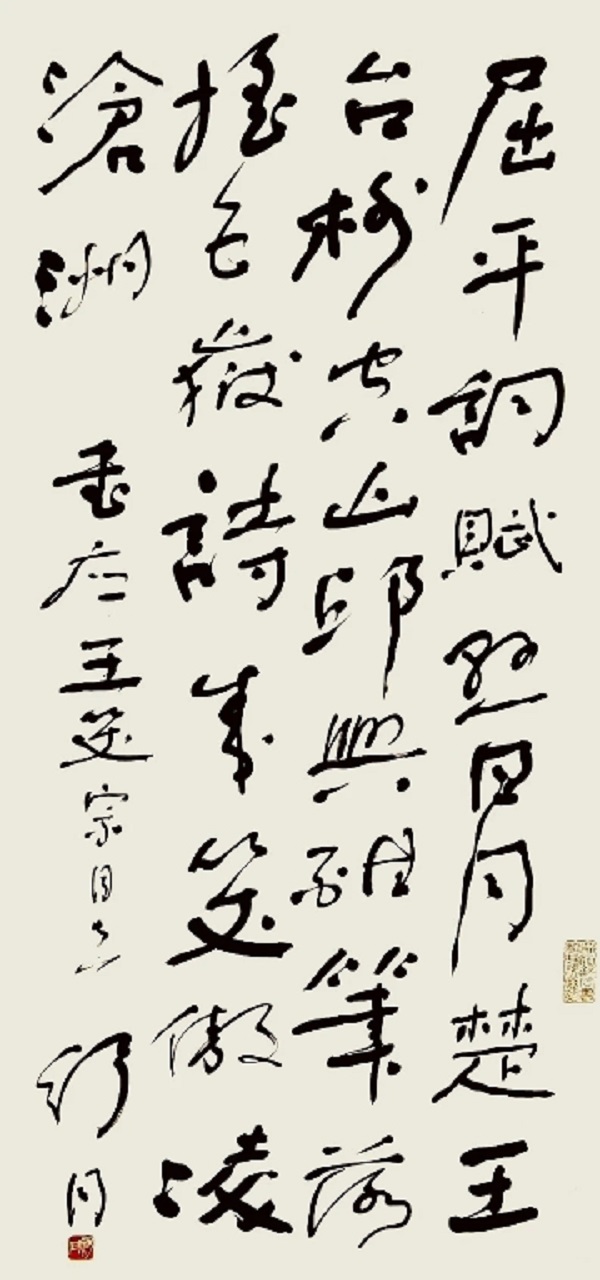 屈平詞賦懸日月楚王
台榭空山邱興酣筆落
搖五嶽詩成笑傲凌
滄洲 書应王笑宗同志